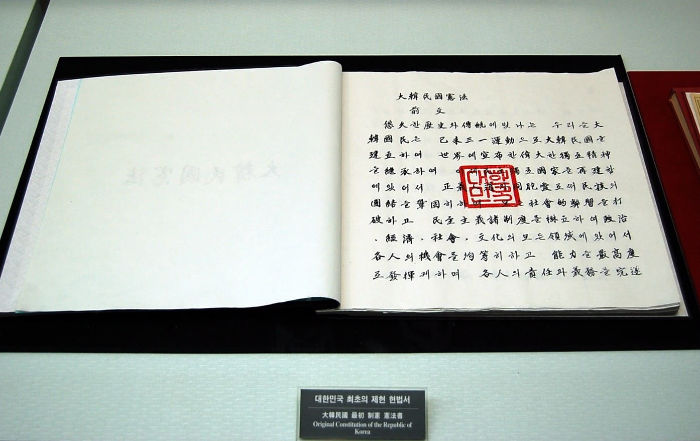 大韓民國憲法
前文
悠久한 歷史와 傳統에 빛나는 우리들 大
韓國民은 己未三一運動으로 大韓民國을
建立하여 世界에 宣布한 偉大한 獨立精神
을 繼承하여 獨立國家를 再建함
에 있어서 正義 同胞愛로써 民族의
團結을 鞏固히 社會的 弊習을 打
破하고 民主主義諸制度를 樹立하여 政治
, 經濟, 社會, 文化의 모든 領域에 있어서
各人의 機會를 均等히 하고 能力을 最高度
로 發揮케 하며 各人의 責任과 義務를 完遂
대한민국
대한민국 최초의 제헌 헌법서
大韓民國 最初 制憲 憲法書
Original Constitution of the Republic of
Korea